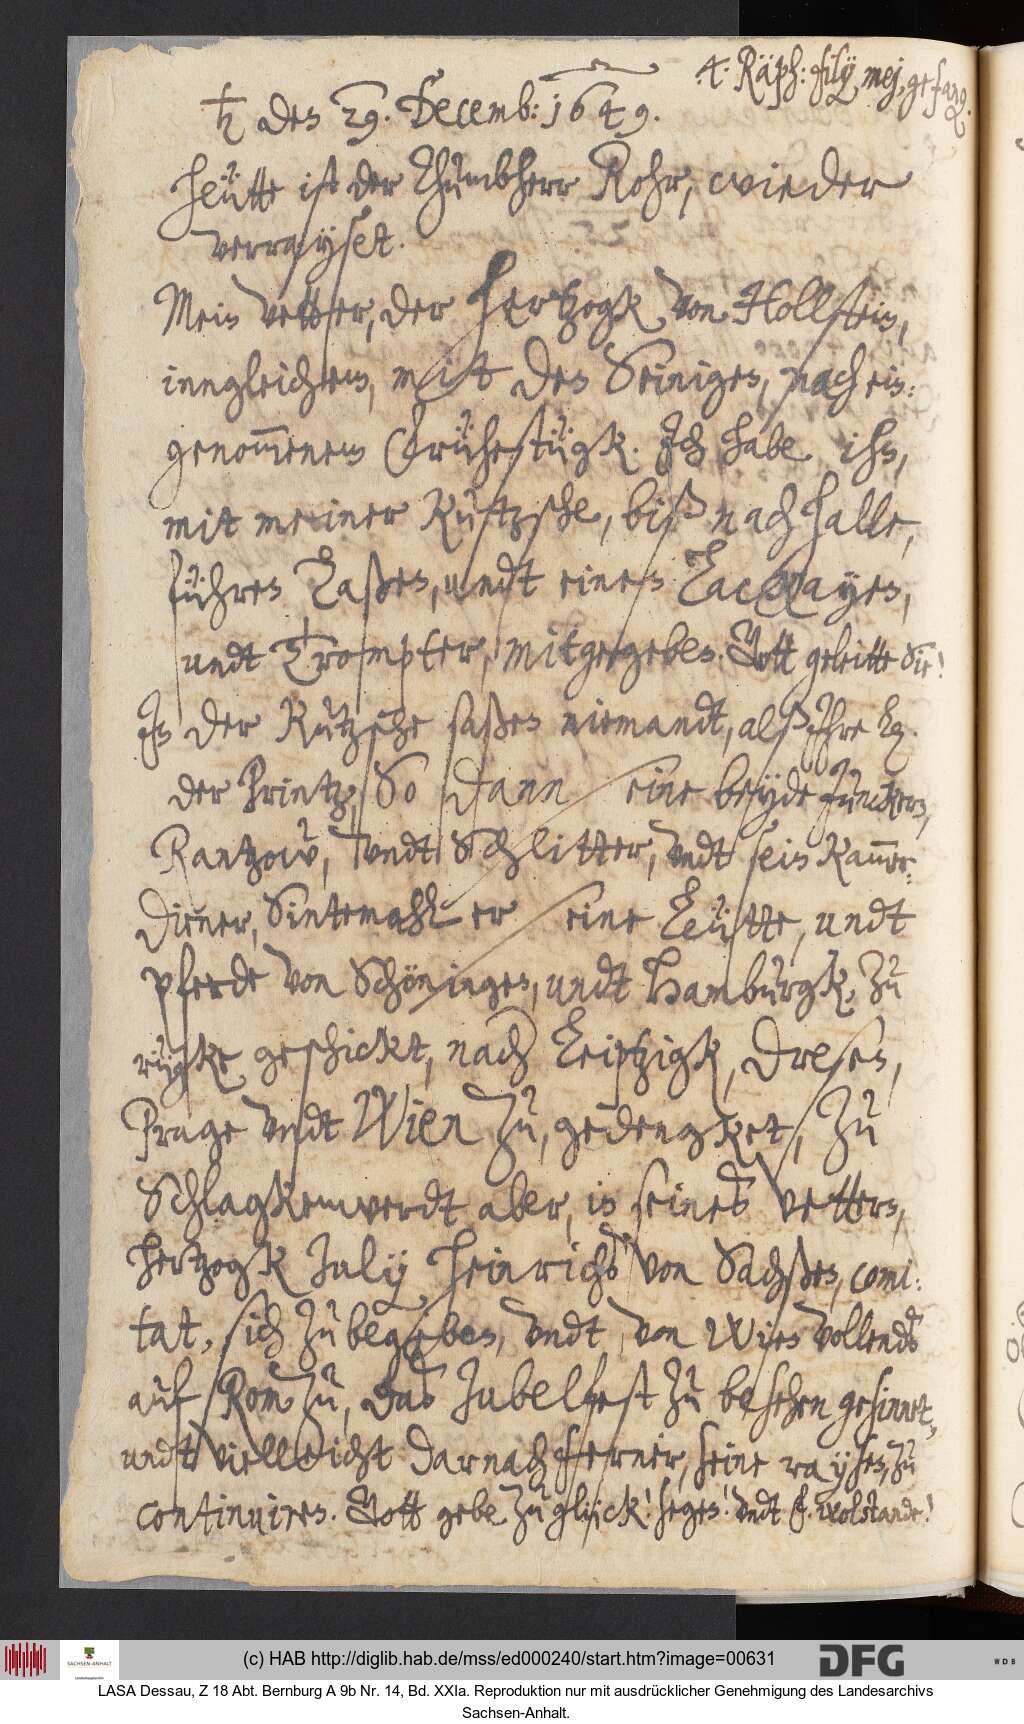 4. Räph: filij mej, gefang.
♄ den 29. Decemb: 1649.
Heütte ist der Thumbherr Rohr, wieder
verrayset.
Mein Vetter, der Hertzogk von Hollstein,
inngleichem, mit den Seinigen, nach ein:
genom̅enem früestügk. Ich habe ihn,
mit meiner Kutzsche, biß nach Halle,
führen laßen, undt einen Lackayen,
undt Trompter, mitgegeben. Gott geleitte Sie!
In der Kutzsche saßen niemandt, alß Ihre Ld.
der Printz, So dann seine beyde Junckern,
Rantzow, undt Schlitter, undt sein Kam̅er:
diener, Sintemahl er seine Leütte, undt
pferde von Schöningen, undt Hamburgk, zu
rügke geschickt, nach Leiptzigk, Dresen,
Prage undt Wien zu, gedengket, zu
Schlagkenwerdt aber, in seines Vetters,
Hertzogk July Heinrichs von Sachßen, comi:
tat, sich zu begeben, undt von Wien vollends
auf Rom zu, das Jubelfest zu besehen gesinnet,
undt vielleicht darnach ferner, seine raysen, zu
continuiren. Gott gebe zu glück! segen! undt f. wolstande!
(c) HAB http://diglib.hab.de/mss/ed000240/start.htm?image=00631
SACHSEN-ANHALT
DFG
WDB
LASA Dessau, Z 18 Abt. Bernburg A 9b Nr. 14, Bd. XXIa. Reproduktion nur mit ausdrücklicher Genehmigung des Landesarchivs
Sachsen-Anhalt.